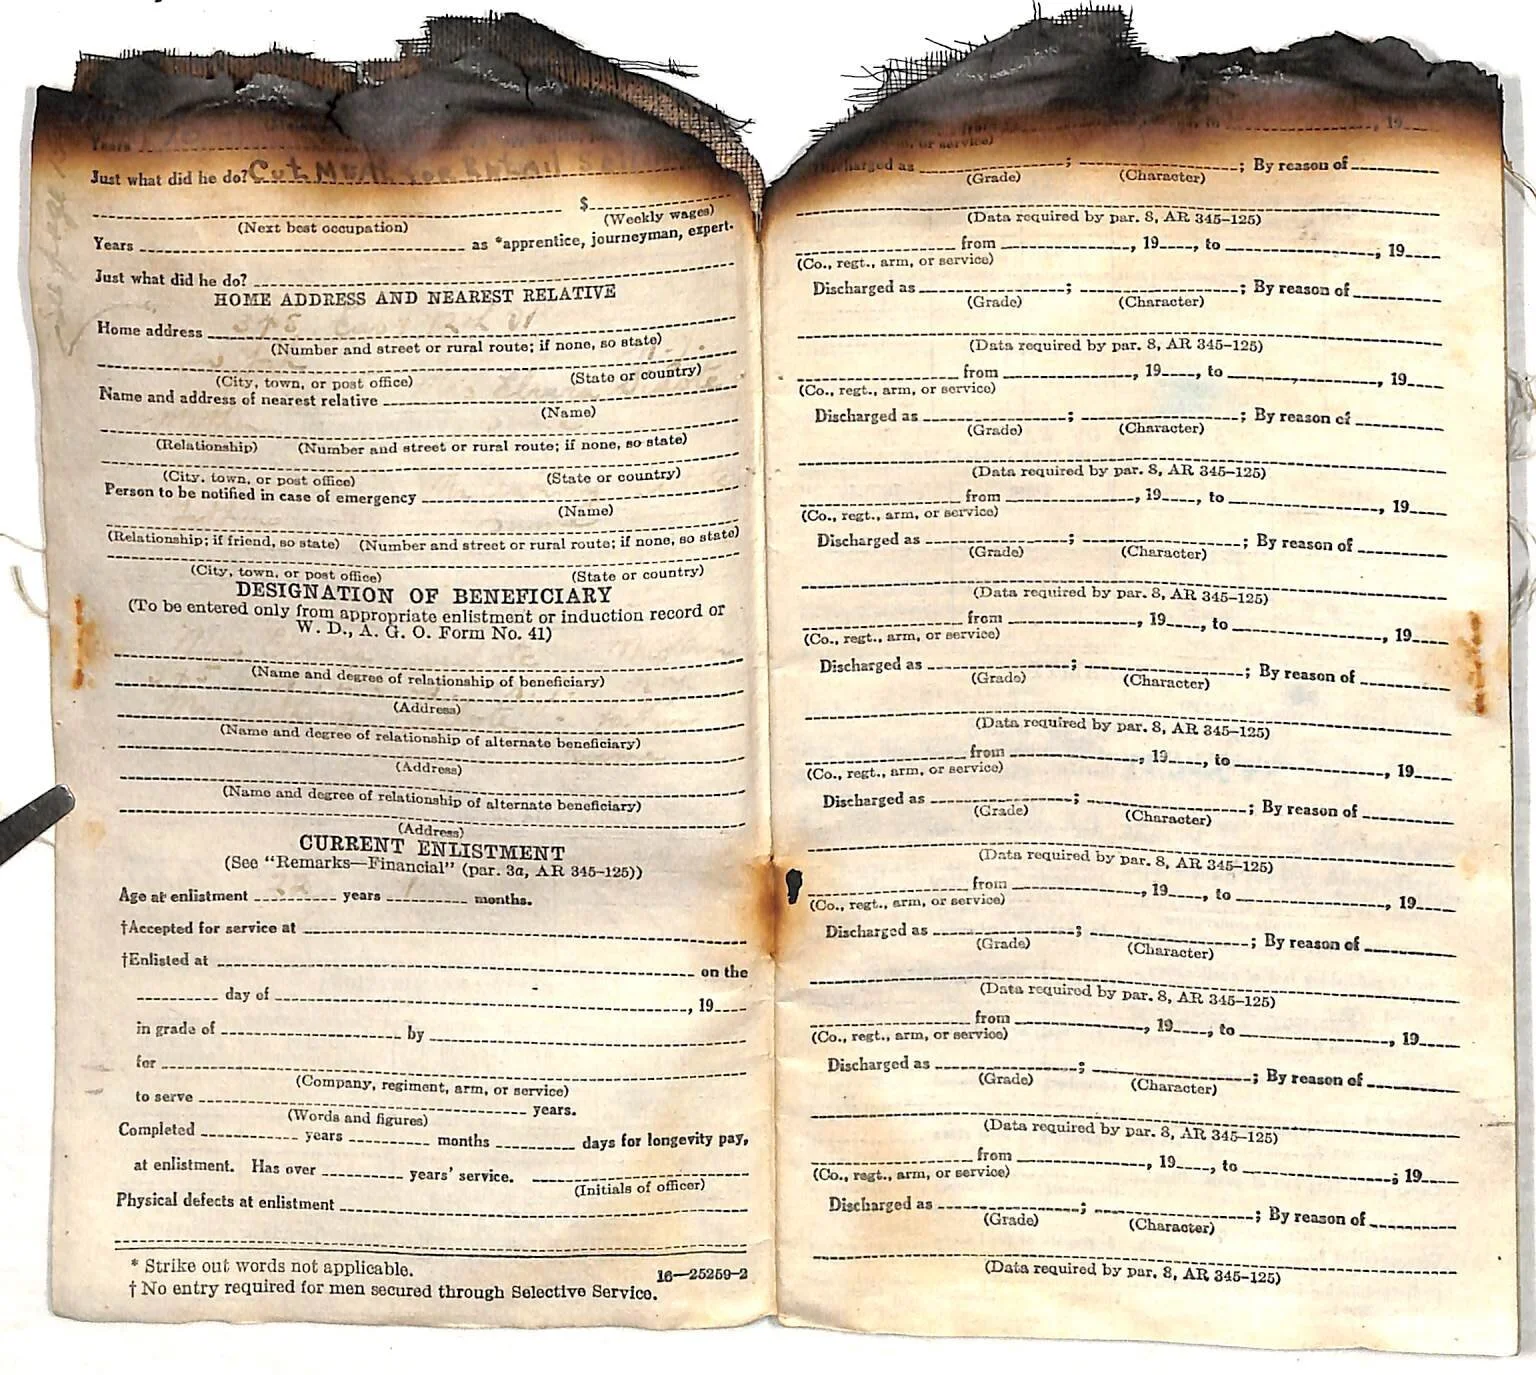 Years
Just what did he do? Cut Meat for Retail
$
(Next best occupation) (Weekly wages)
Years as *apprentice, journeyman, expert.
Just what did he do?
HOME ADDRESS AND NEAREST RELATIVE
Home address
(Number and street or rural route; if none, so state)
(City, town, or post office) (State or country)
Name and address of nearest relative
(Name)
(Relationship) (Number and street or rural route; if none, so state)
(City, town, or post office) (State or country)
Person to be notified in case of emergency
(Name)
(Relationship; if friend, so state) (Number and street or rural route; if none, so state)
(City, town, or post office) (State or country)
DESIGNATION OF BENEFICIARY
(To be entered only from appropriate enlistment or induction record or
W. D., A. G. O. Form No. 41)
(Name and degree of relationship of beneficiary)
(Address)
(Name and degree of relationship of alternate beneficiary)
(Address)
(Name and degree of relationship of alternate beneficiary)
(Address)
CURRENT ENLISTMENT
(See "Remarks—Financial" (par. 3a, AR 345-125))
Age at enlistment years months.
†Accepted for service at
†Enlisted at on the
day of , 19
in grade of by
for
(Company, regiment, arm, or service)
to serve years.
(Words and figures)
Completed years months days for longevity pay,
at enlistment. Has over years' service.
(Initials of officer)
Physical defects at enlistment
* Strike out words not applicable. 16—25259-2
† No entry required for men secured through Selective Service.
from , to , 19
or service)
Discharged as ; ; By reason of
(Grade) (Character)
(Data required by par. 8, AR 345-125)
from , 19 , to , 19
(Co., regt., arm, or service)
Discharged as ; ; By reason of
(Grade) (Character)
(Data required by par. 8, AR 345-125)
from , 19 , to , 19
(Co., regt., arm, or service)
Discharged as ; ; By reason of
(Grade) (Character)
(Data required by par. 8, AR 345-125)
from , 19 , to , 19
(Co., regt., arm, or service)
Discharged as ; ; By reason of
(Grade) (Character)
(Data required by par. 8, AR 345-125)
from , 19 , to , 19
(Co., regt., arm, or service)
Discharged as ; ; By reason of
(Grade) (Character)
(Data required by par. 8, AR 345-125)
from , 19 , to , 19
(Co., regt., arm, or service)
Discharged as ; ; By reason of
(Grade) (Character)
(Data required by par. 8, AR 345-125)
from , 19 , to , 19
(Co., regt., arm, or service)
Discharged as ; ; By reason of
(Grade) (Character)
(Data required by par. 8, AR 345-125)
from , 19 , to , 19
(Co., regt., arm, or service)
Discharged as ; ; By reason of
(Grade) (Character)
(Data required by par. 8, AR 345-125)
from , 19 , to ; 19
(Co., regt., arm, or service)
Discharged as ; ; By reason of
(Grade) (Character)
(Data required by par. 8, AR 345-125)